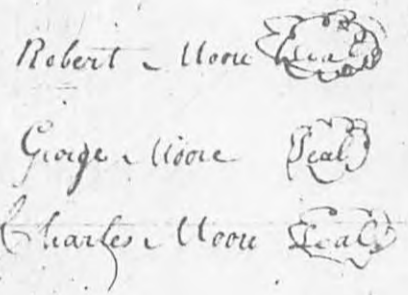 Robert Moore Seal
George Moore Seal
Charles Moore Seal